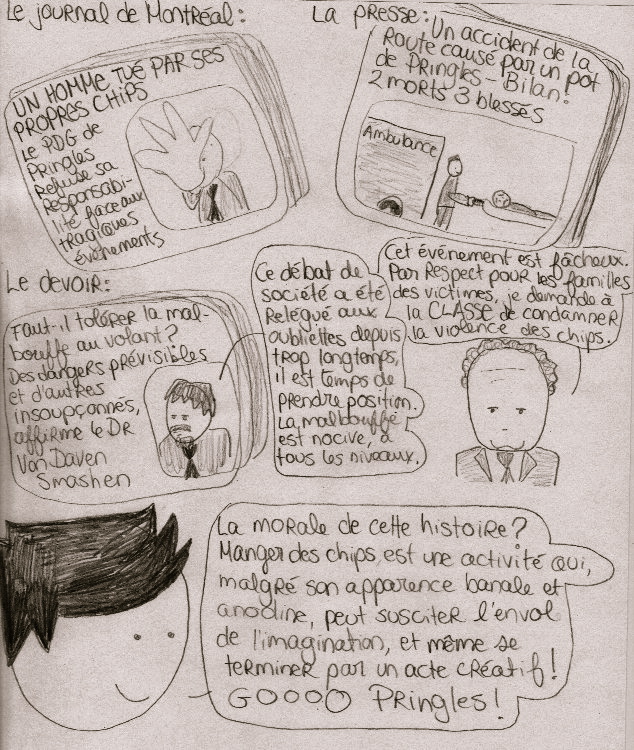 Le journal de Montréal:
UN HOMME TUÉ PAR SES
PROPRES CHIPS
Le PDG de
Pringles
Refuse sa
Responsabi-
lité face aux
tragiques
événements
La Presse:
Un accident de la
Route causé par un pot
de Pringles - Bilan:
2 morts 3 blessés
Ambulance
Le devoir:
Faut-il tolérer la mal-
bouffe au volant?
Des dangers prévisibles
et d'autres
insoupçonnés,
affirme le DR
Von Daven
Smashen
Ce débat de
société a été
Relégué aux
oubliettes depuis
trop longtemps,
il est temps de
prendre position.
La malbouffe
est nocive, à
tous les niveaux.
Cet événement est fâcheux.
Par Respect pour les familles
des victimes, je demande à
la CLASSE de condamner
la violence des chips.
La morale de cette histoire?
Manger des chips est une activité qui,
malgré son apparence banale et
anodine, peut susciter l'envol
de l'imagination, et même se
terminer par un acte créatif!
GOOOO Pringles!